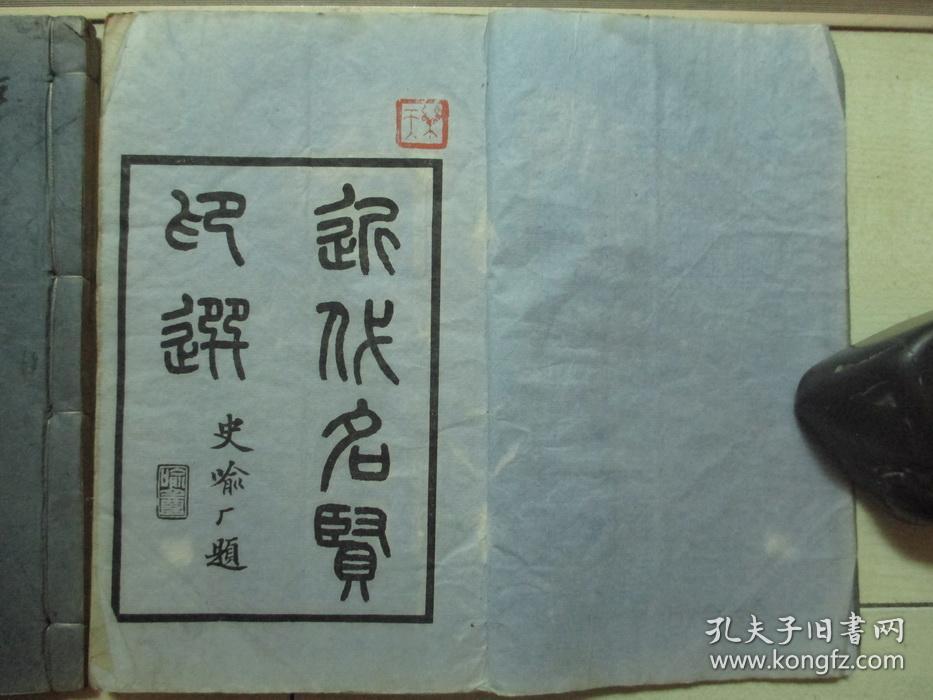 近代名賢
印選
史喻厂題
孔夫子旧书网
www.kongfz.com